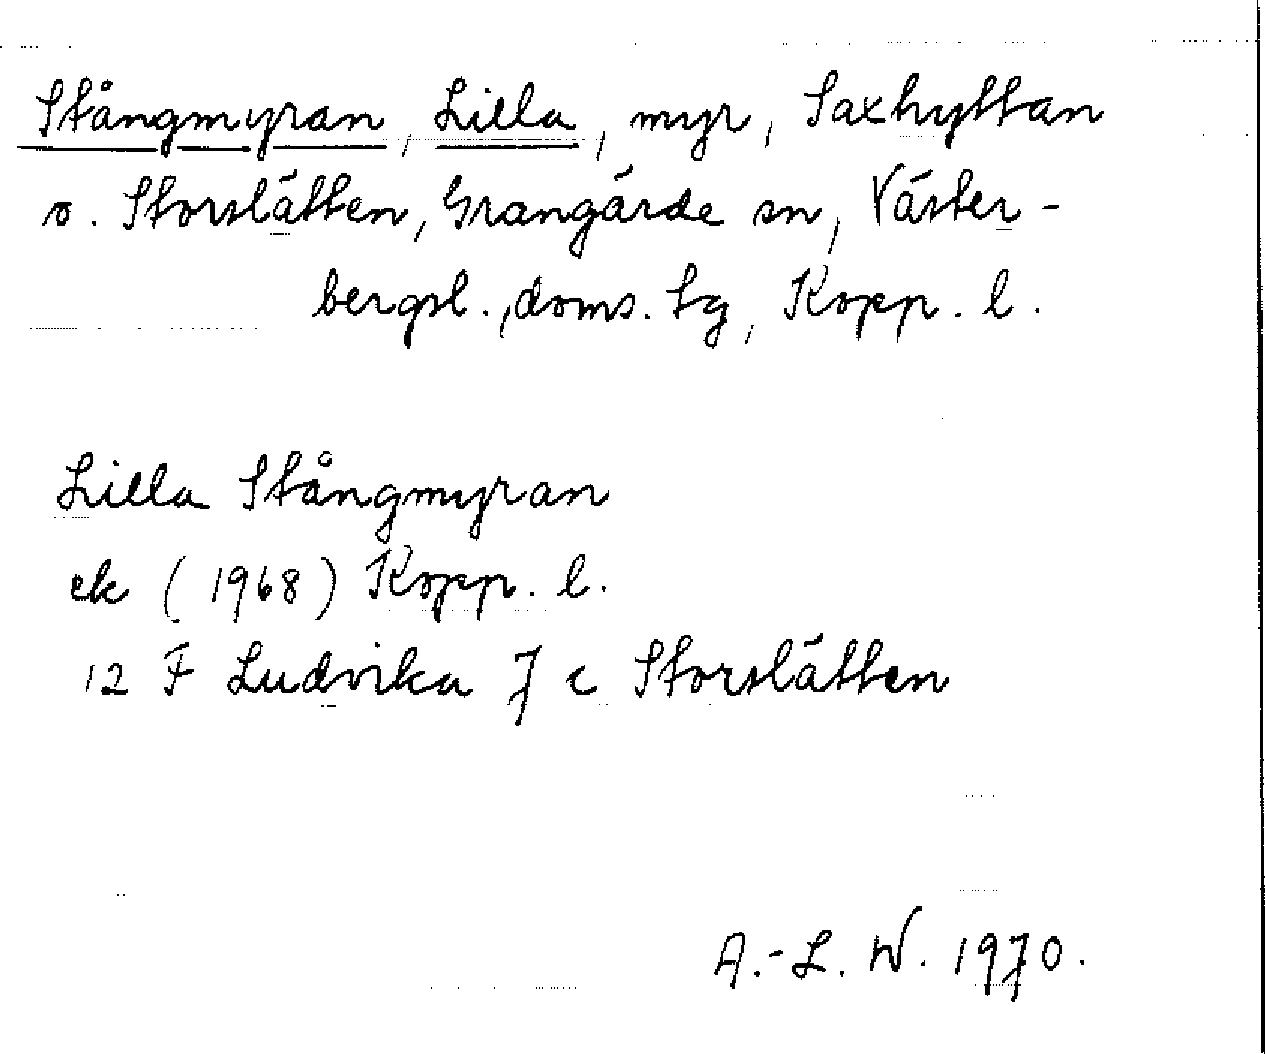 Stångmyran, Lilla, myr, Saxhyttan
o. Storslätten, Grangärde sn, Väster-
bergsl., doms. tg, Kopp. l.
Lilla Stångmyran
ek (1968) Kopp. l.
12 F Ludvika 7 c Storslätten
A.-L. W. 1970.